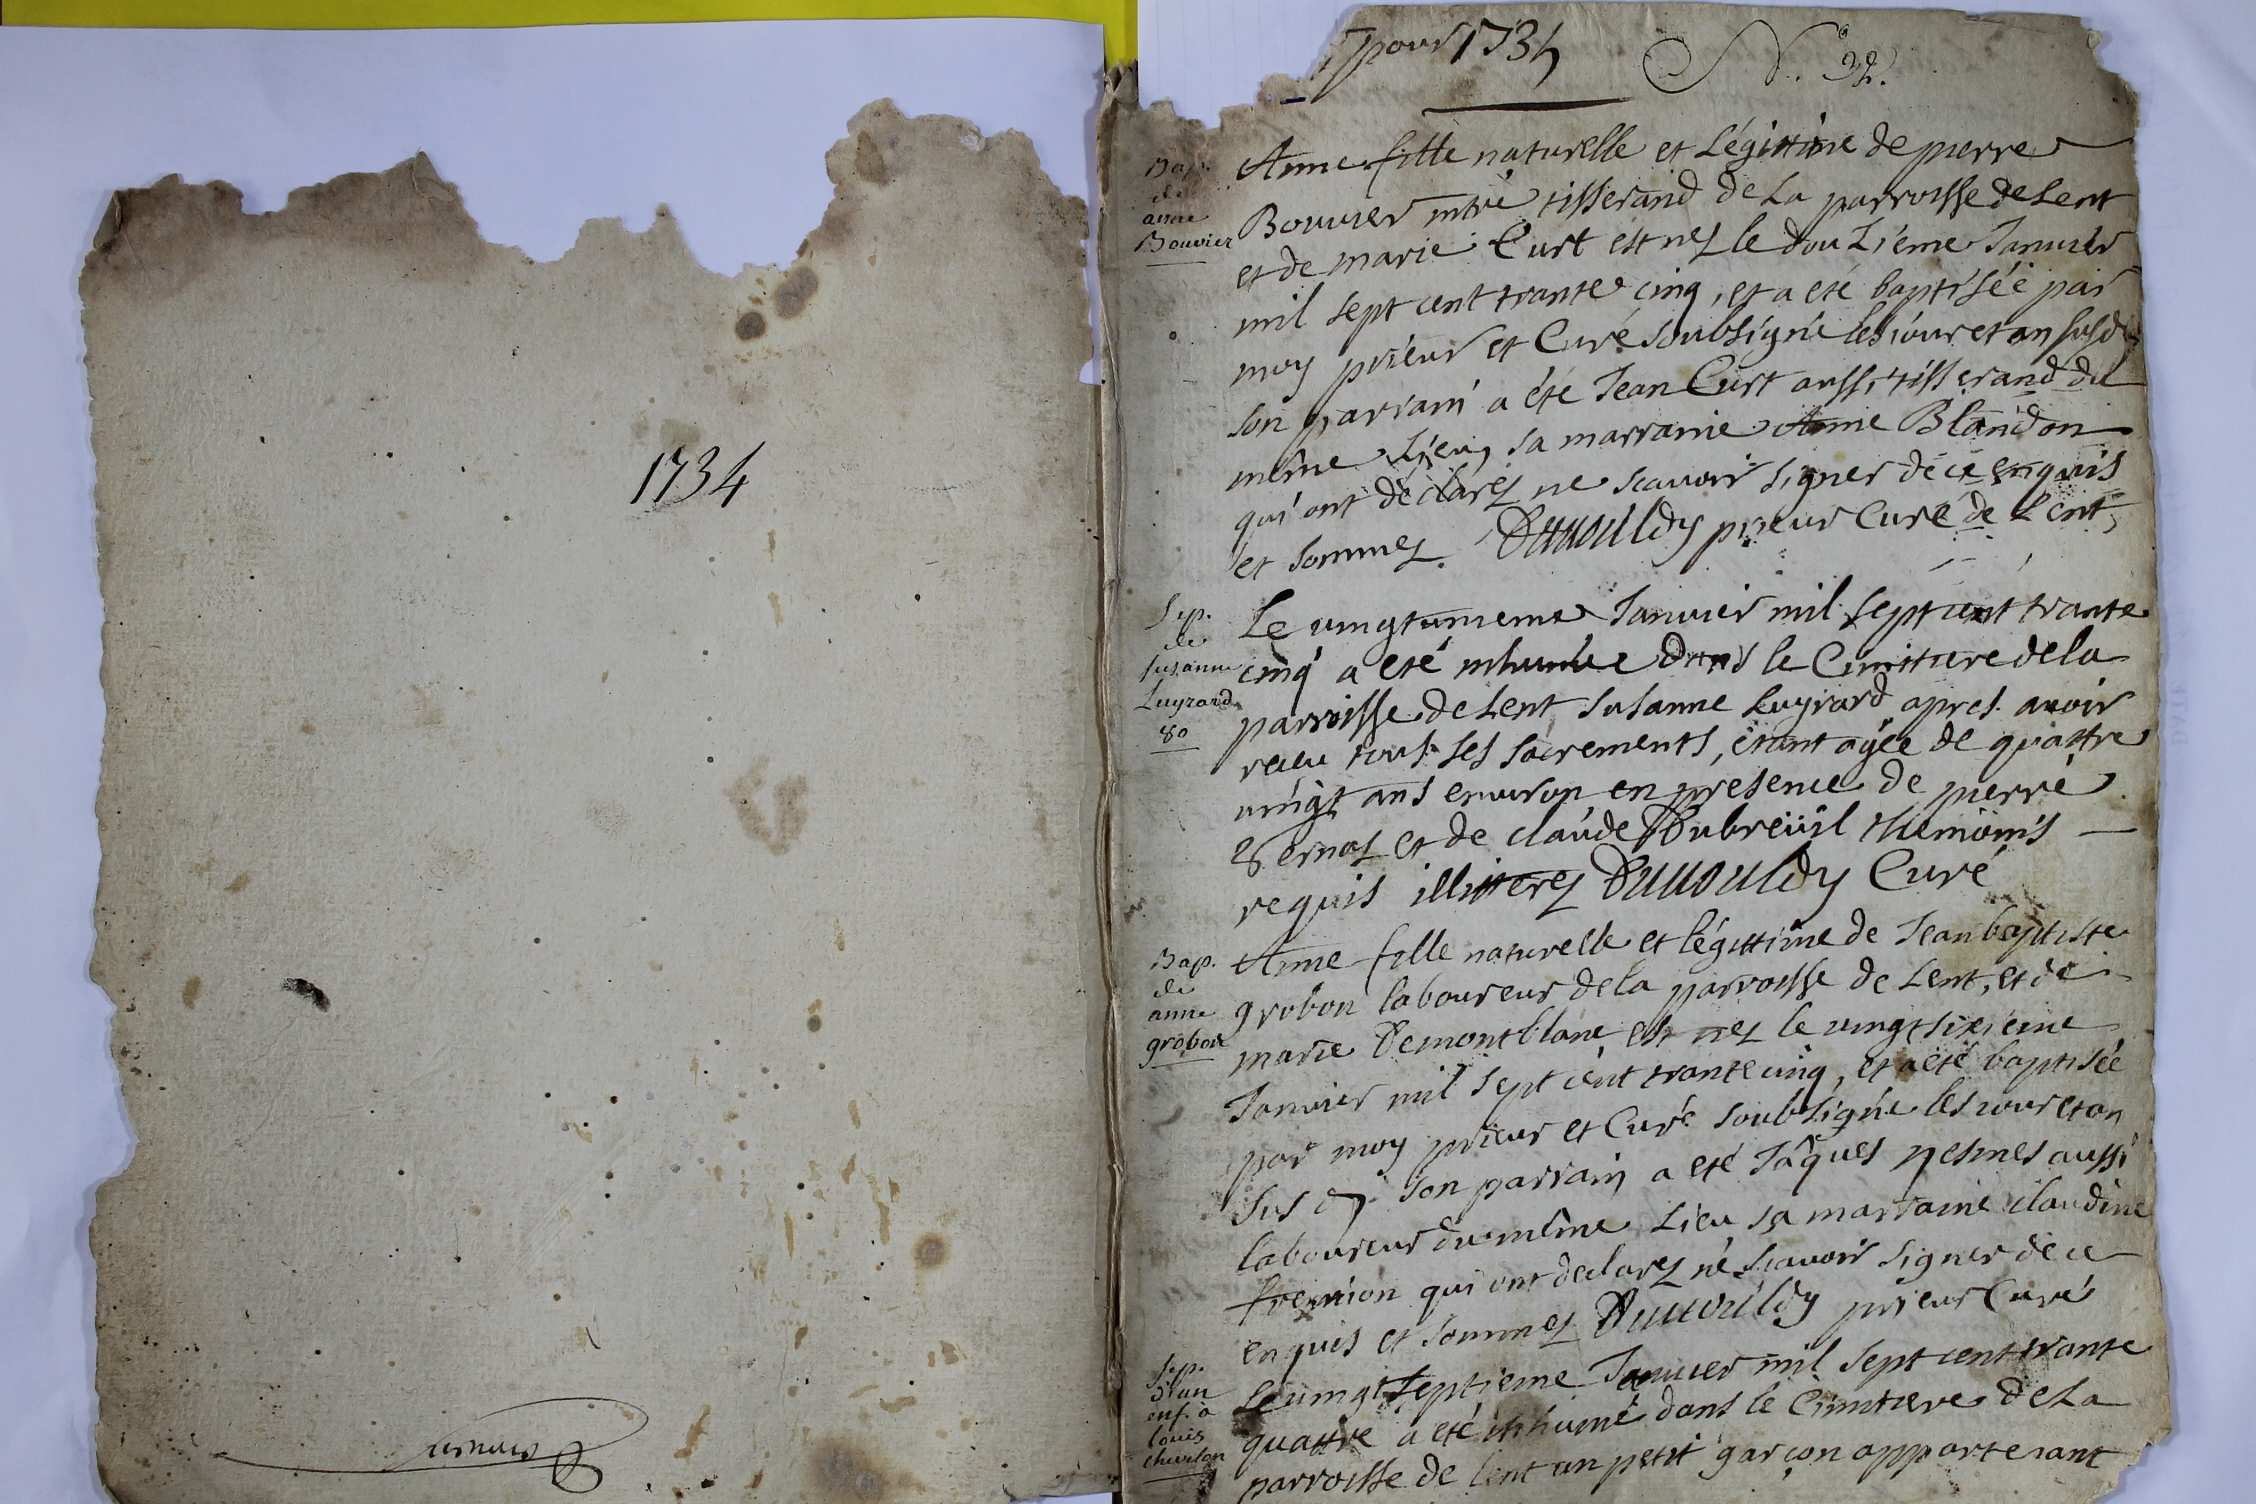 1734
pour 1734
N. 32.
Bap.
de
anne
Bouvier
Anne fille naturelle et Légittime de pierre
Bouvier mtre tisserand de La parroisse de Lent
et de marie Curt est nez le douzieme Janvier
mil sept cent trante cinq, et a eté baptisée par
moy prieur et Curé soubsigné les jour et an susd
son parrain a été Jean Curt aussi tisserand du
même Lieu, sa marraine Anne Blandon
qui ont declarez ne scavoir signer de ce enquis
et sommez. prieur Curé de Lent,
Sep.
de
susanne
Luyrard
80
Le vingtunieme Janvier mil sept cent trante
cinq a eté inhumée dans le Cimittiere de la
parroisse de Lent susanne Luyrard apres avoir
receu tous ses sacrements, étant agée de quattre
vingt ans environ en presence de pierre
et de claude Dubreüil themoins
requis illitterez Curé
Bap.
de
anne
grobon
Anne fille naturelle et légittime de Jean baptiste
grobon laboureur de la parroisse de Lent, et de
marie Demontblanc est nez le vingt sixieme
Janvier mil sept cent trante cinq, et a eté baptisée
par moy prieur et Curé soubsigné les jour et an
sus d. son parrain a eté Jâques nesmes aussi
laboureur du même Lieu sa marraine claudine
fremion qui ont declarez ne scavoir signer de ce
enquis et sommez prieur Curé
Sep.
d'un
enf. a
louis
chevelon
Le vingt septieme Janvier mil sept cent trante
quattre a eté inhumé dans le Cimitiere de La
parroisse de Lent un petit garçon appartenant